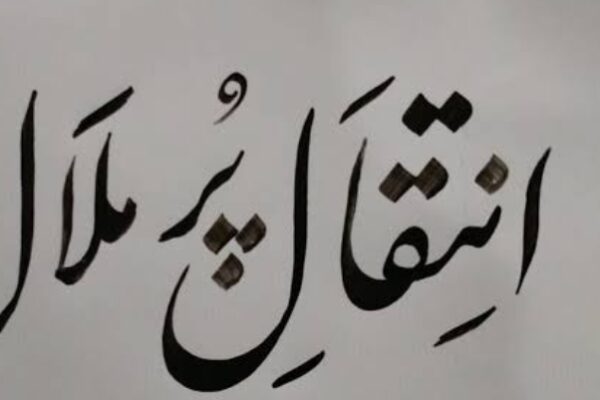 انتِقَالِ پُر مَلَال